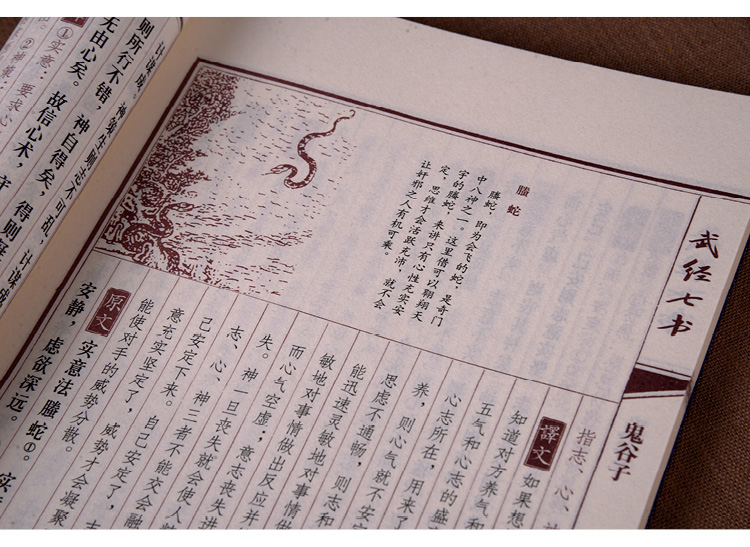 武经七书
鬼谷子
螣蛇
螣蛇，即为会飞的蛇，是奇门
中八神之一。这里借可以翱翔天
宇的螣蛇，来讲只有心性充实安
定，思维才会活跃充沛，就不会
让奸邪之人有机可乘。
指志、心、
譯文 如果想
知道对方养气和
五气和心志的盛
心志所在，用来了
养，则心气就不安
思虑不通畅，则志和
能迅速灵敏地对事情
敏地对事情做出反应并
而心气空虚；意志丧失
失。神一旦丧失就会使人
志、心、神三者不能交会融
己安定下来。自己安定了，
意充实坚定了，威势才会凝聚
能使对手的威势分散。
原文 实意法螣蛇①。实
安静，虚欲深远。
计谋成。神策生则志不可乱，计谋成
则所行不错，神自得矣，得则
无由心矣。故信心术，守
①实意：要求心
②神策：